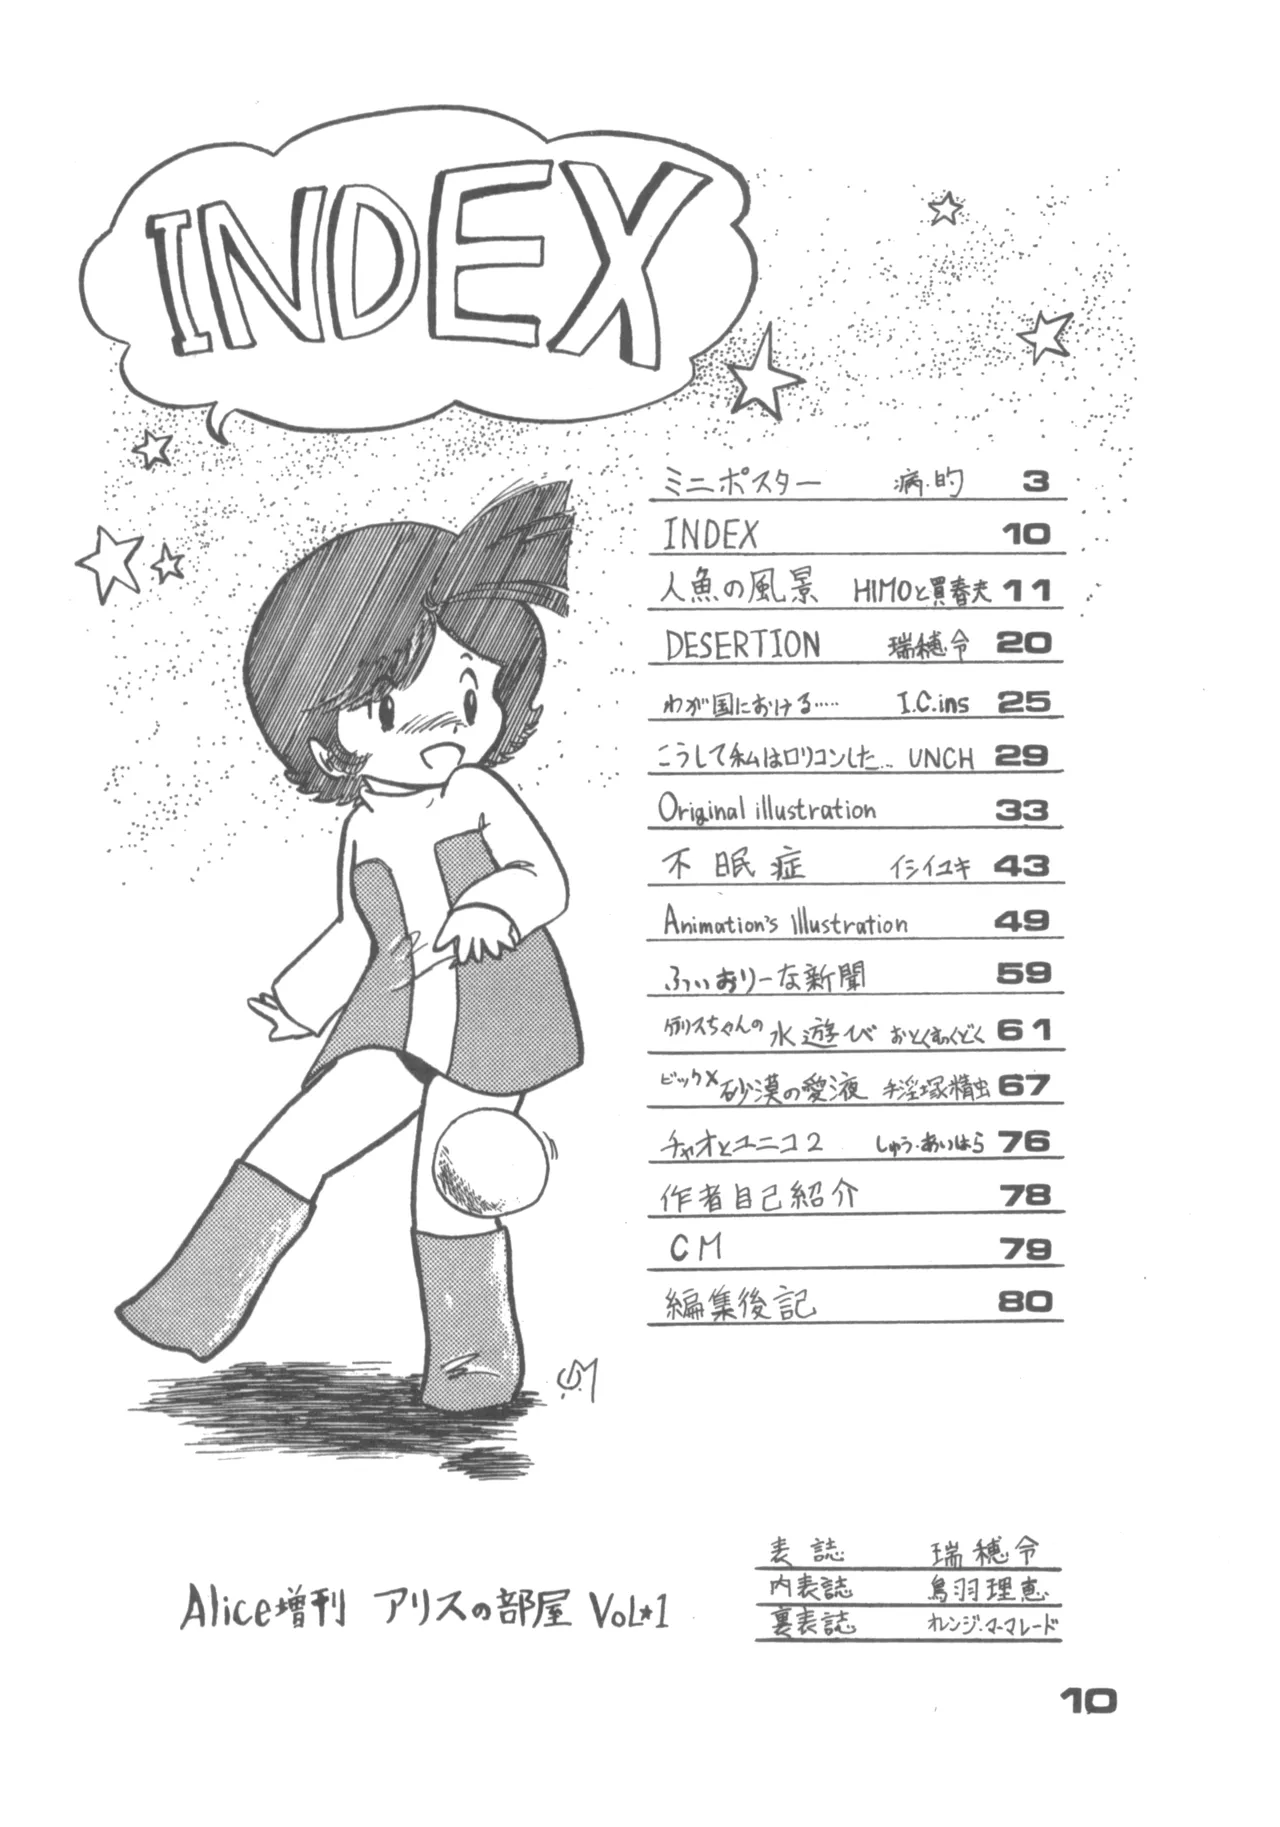 INDEX
ミニポスター 病的 3
INDEX 10
人魚の風景 HIMOと買春夫 11
DESERTION 瑞穂令 20
わが国における…… I.C.ins 25
こうして私はロリコンした… UNCH 29
Original illustration 33
不眠症 イシイユキ 43
Animation's Illustration 49
ふぃおりーな新聞 59
ちゃんの 水遊び おとくむくどく 61
ビックX 砂漠の愛液 手淫塚精虫 67
チャオとユニコ2 しゅう・あいはら 76
作者自己紹介 78
CM 79
編集後記 80
表誌 瑞穂令
内表誌 鳥羽理恵
裏表誌 オレンジ・マーマレード
Alice増刊 アリスの部屋 VOL*1
10